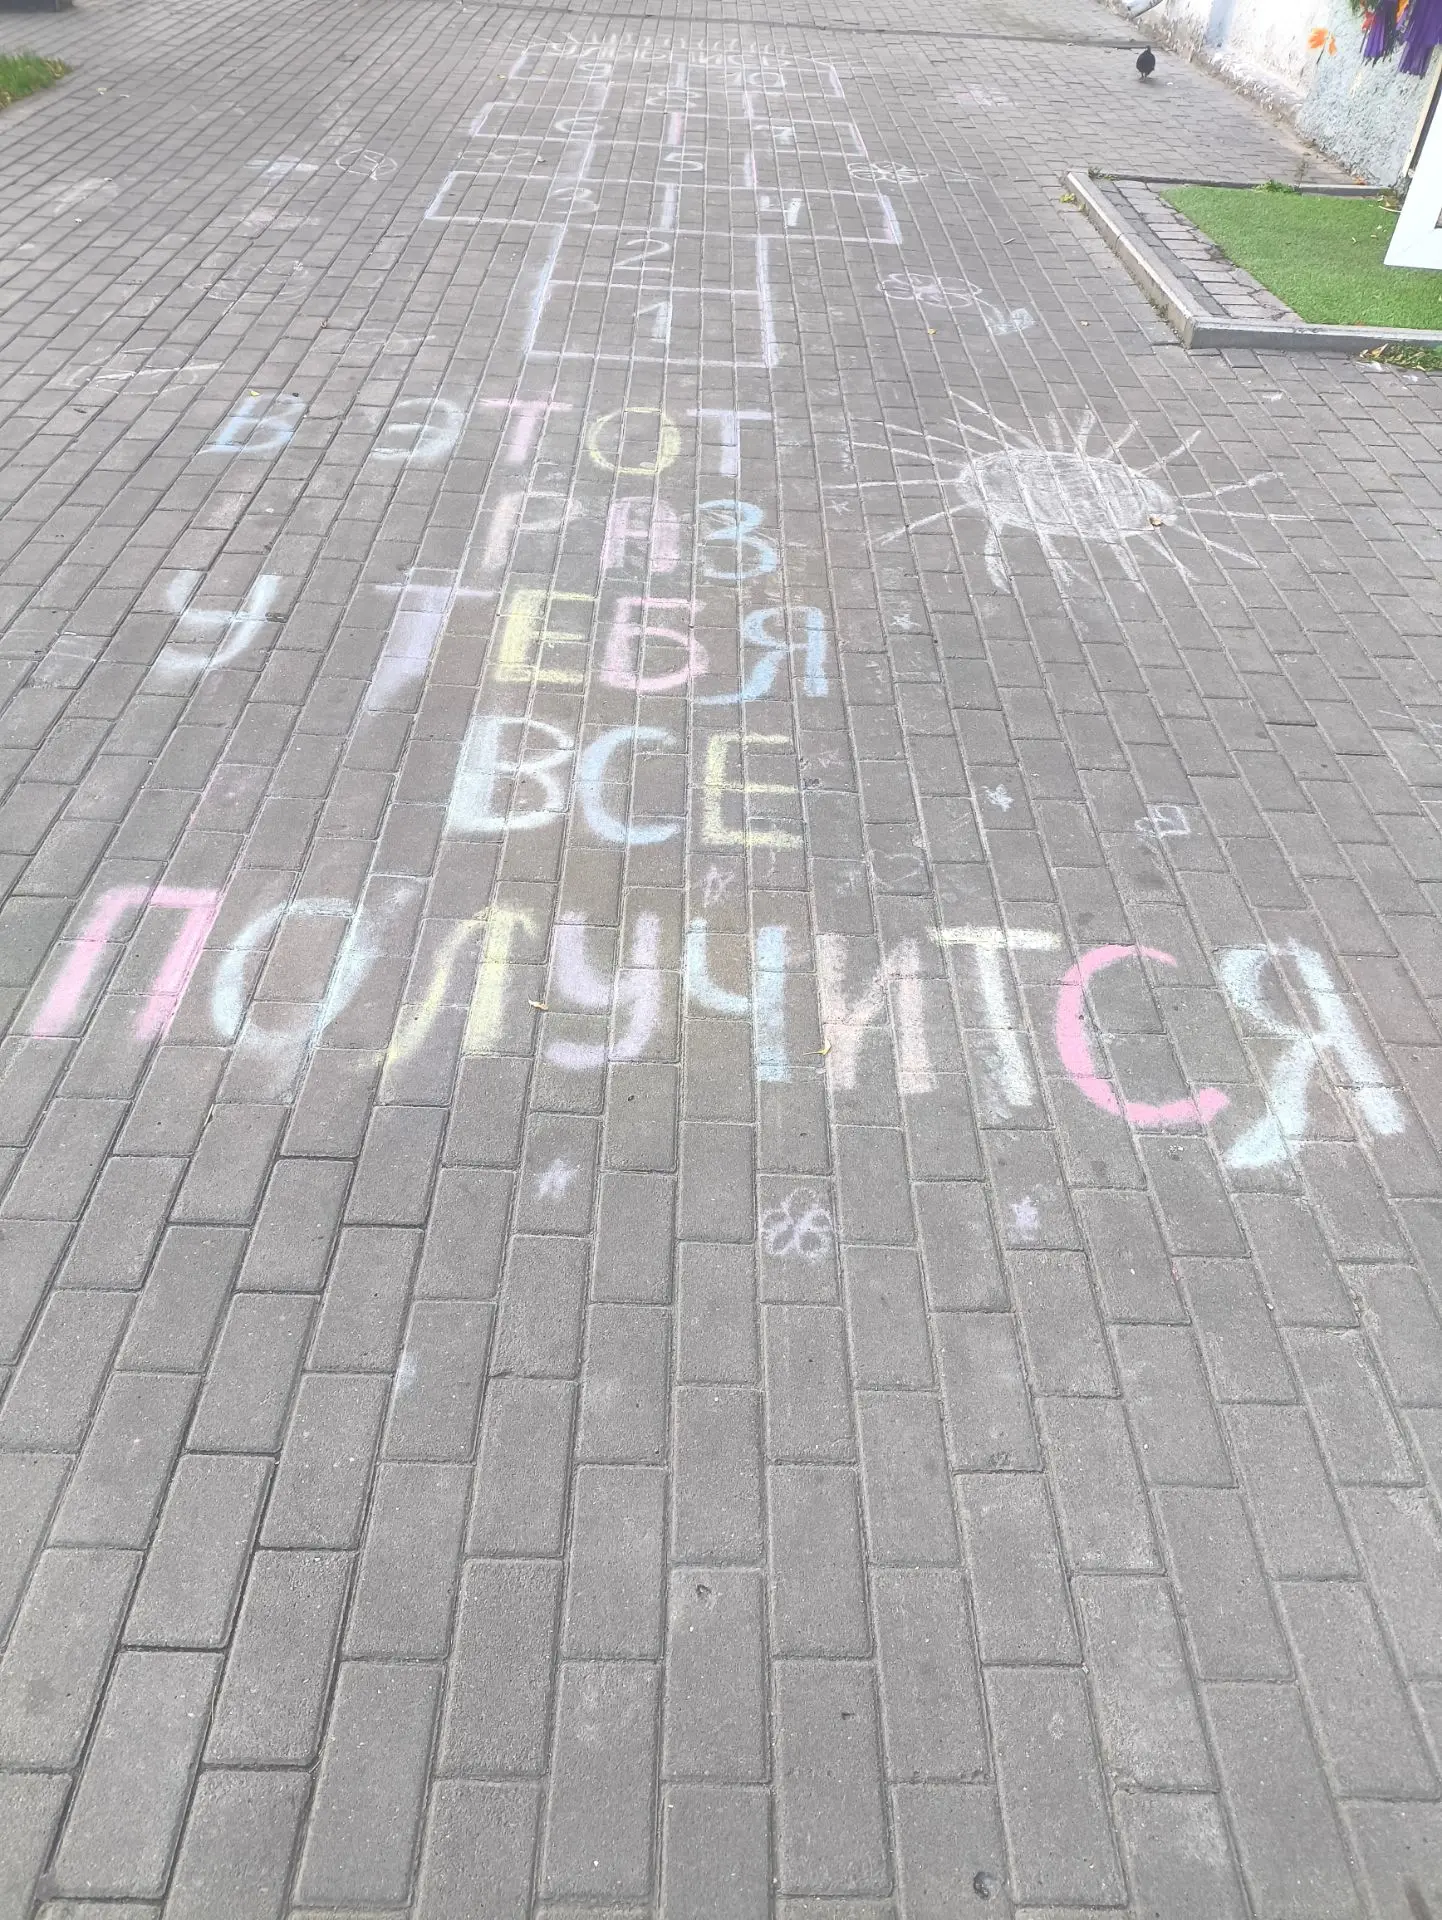 9 10
8
6 7
5
3 4
2
1
В ЭТОТ
РАЗ
У ТЕБЯ
ВСЕ
ПОЛУЧИТСЯ